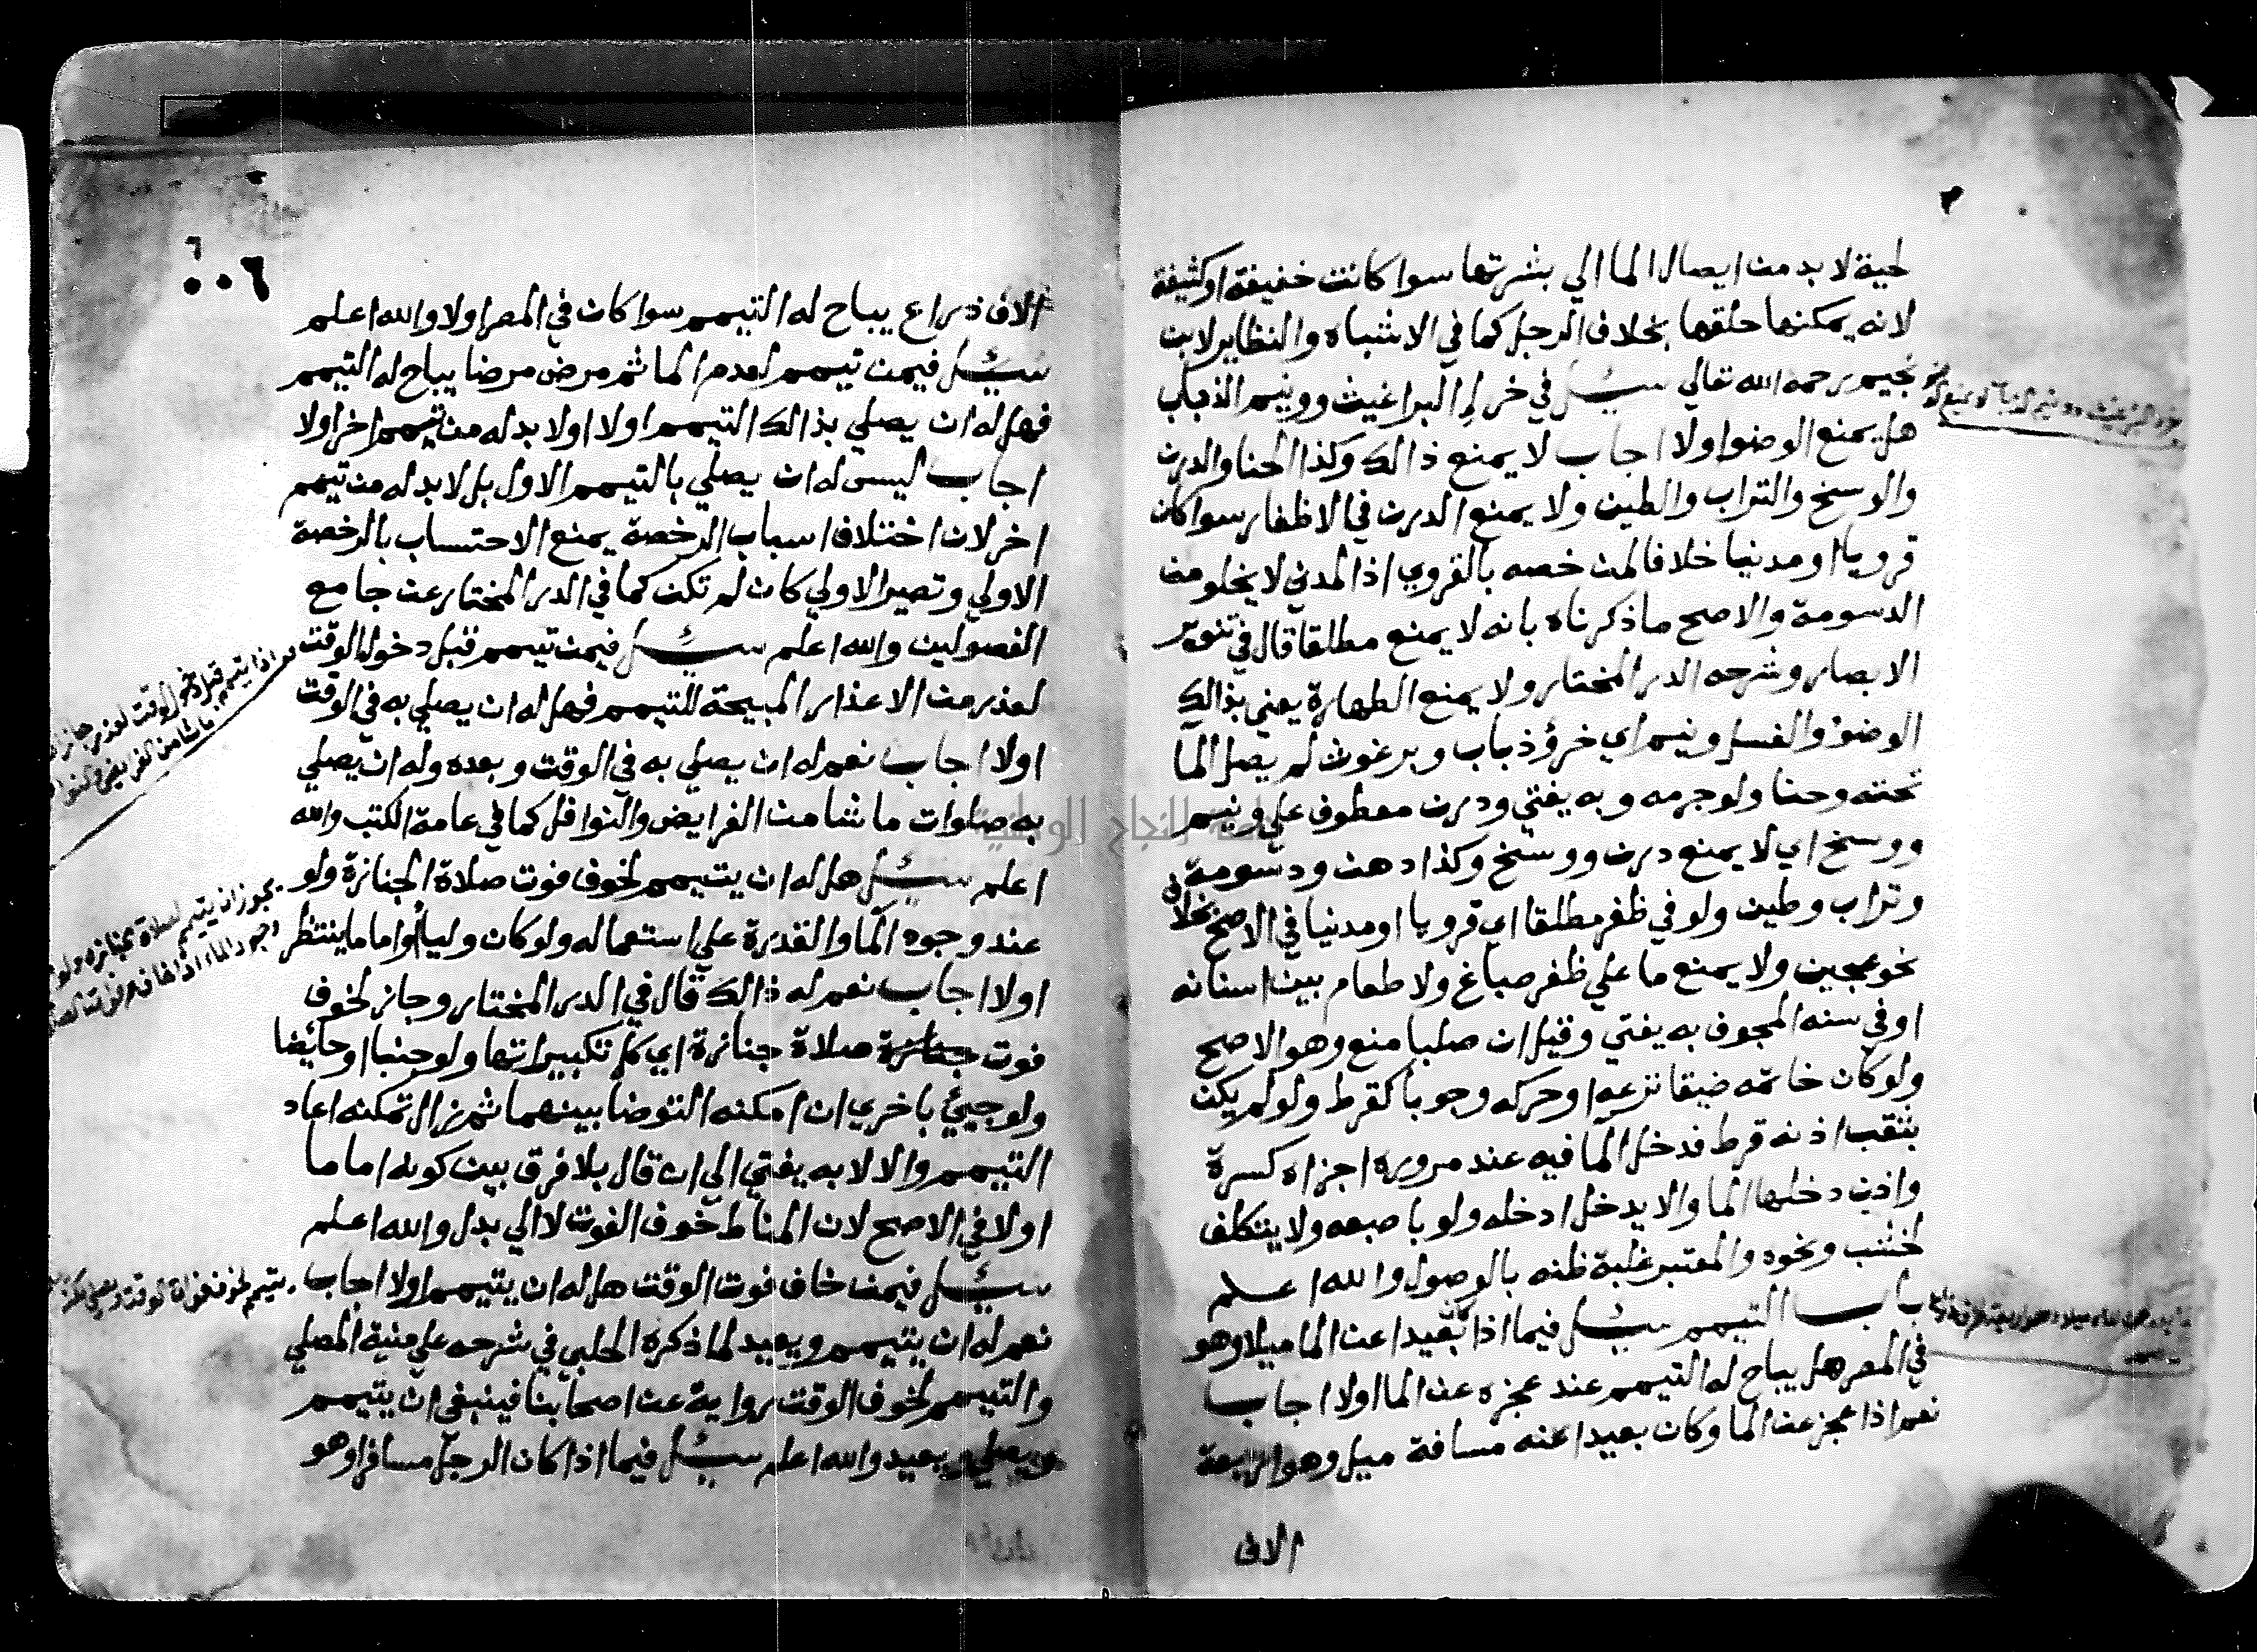 لحية لا بد من ايصال الما الي بشرتها سوا كانت خفيفة او كثيفة
لانه يمكنها حلقها بخلاف الرجل كما في الاشباه والنظاير لابن
نجيم رحمه الله تعالي سئل في خرا البراغيث وونيم الذباب
هل يمنع الوضوا ولا اجاب لا يمنع ذالك وكذا الحنا والدرن
والوسخ والتراب والطين ولا يمنع الدرن في الاظفار سوا كان
قرويا او مدنيا خلافا لمن خصه بالقروي اذ المدني لا يخلو من
الدسومة والاصح ما ذكرناه بانه لا يمنع مطلقا قال في تنوير
الابصار وشرحه الدر المختار ولا يمنع الطهارة يعني بذالك
الوضؤ والغسل ونيم اي خرؤ ذباب وبرغوث لم يصل الما
تحته وحنا ولو جرمه وبه يفتي ودرن معطوف علي ونيم
ووسخ اي لا يمنع درن ووسخ وكذا دهن ودسومة
وتراب وطين ولو في ظفر مطلقا اي قرويا او مدنيا في الاصح بخلاف
نحو عجين ولا يمنع ما علي ظفر صباغ ولا طعام بين اسنانه
او في سنه المجوف به يفتي وقيل ان صلبا منع وهو الاصح
ولو كان خاتمه ضيقا نزعه او حركه وجوبا كقرط ولو لم يكن
بثقب اذنه قرط فدخل الما فيه عند مروره اجزاه كسرة
واذن دخلها الما والا يدخل ادخله ولو باصبعه ولا يتكلف
لخشب ونحوه والمعتبر غلبة ظنه بالوصول والله اعلم
باب التيمم سئل فيما اذا كان بعيدا عن الما ميلا وهو
في المصر هل يباح له التيمم عند عجزه عن الما اولا اجاب
نعم اذا عجز عن الما وكان بعيدا عنه مسافة ميل وهو اربعة
الاف
٦
٠٠٦
الاف ذراع يباح له التيمم سوا كان في المصر اولا والله اعلم
سئل فيمن تيمم لعدم الما ثم مرض مرضا يباح له التيمم
فهل له ان يصلي بذالك التيمم اولا اولا بد له من تيمم اخر اولا
اجاب ليس له ان يصلي بالتيمم الاول بل لا بد له من تيمم
اخر لان اختلاف اسباب الرخصة يمنع الاحتساب بالرخصة
الاولي وتصير الاولي كان لم تكن كما في الدر المختار عن جامع
الفصولين والله اعلم سئل فيمن تيمم قبل دخول الوقت
لعذر من الاعذار المبيحة للتيمم فهل له ان يصلي به في الوقت
اولا اجاب نعم له ان يصلي به في الوقت وبعده وله ان يصلي
به صلوات ما شا من الفرايض والنوافل كما في عامة الكتب والله
اعلم سئل هل له ان يتيمم لخوف فوت صلاة الجنازة ولو
عند وجود الما والقدرة علي استعماله ولو كان وليا او اماما ينتظر
اولا اجاب نعم له ذالك قال في الدر المختار وجاز لخوف
فوت جنازة صلاة جنازة اي كل تكبيراتها ولو جنبا او حايضا
ولو جيئ باخري ان امكنه التوضا بينهما ثم زال تمكنه اعاد
التيمم والا لا به يفتي الي ان قال بلا فرق بين كونه اماما
اولا في الاصح لان المناط خوف الفوت لا الي بدل والله اعلم
سئل فيمن خاف فوت الوقت هل له ان يتيمم اولا اجاب
نعم له ان يتيمم ويعيد لما ذكره الحلبي في شرحه علي منية المصلي
والتيمم لخوف الوقت رواية عن اصحابنا فينبغي ان يتيمم
ويصلي ويعيد والله اعلم سئل فيما اذا كان الرجل مسافرا وهو
جامعة النجاح الوطنية